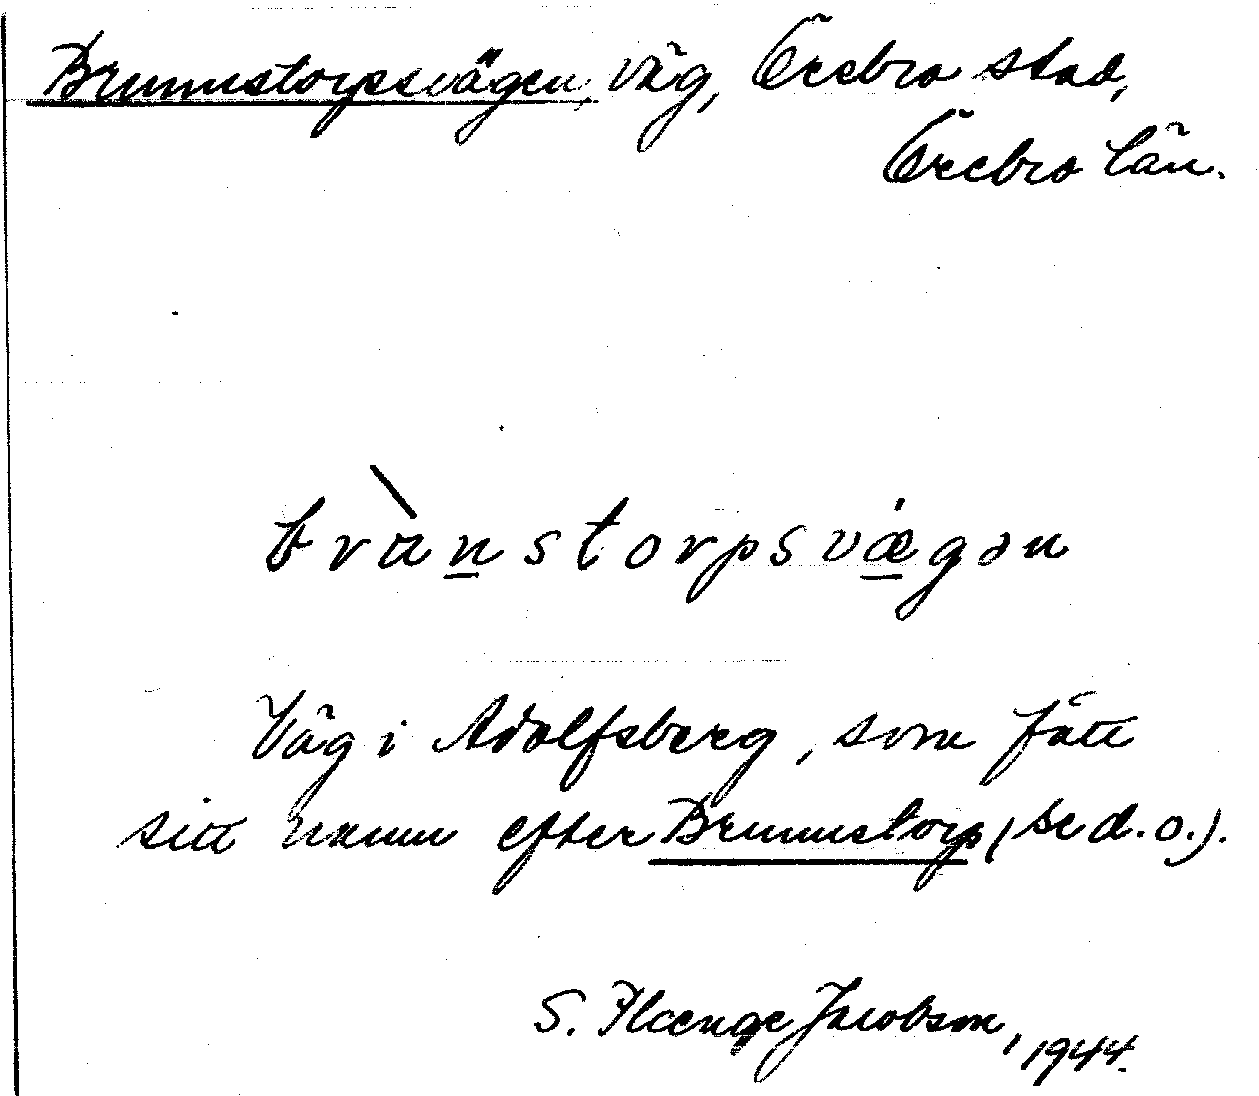 Brunnstorpsvägen, väg, Örebro stad,
Örebro län.
brùnstorpsvægən
Väg i Adolfsberg, som fått
sitt namn efter Brunnstorp (se d. o.).
S. Flaenge Jacobson, 1944.